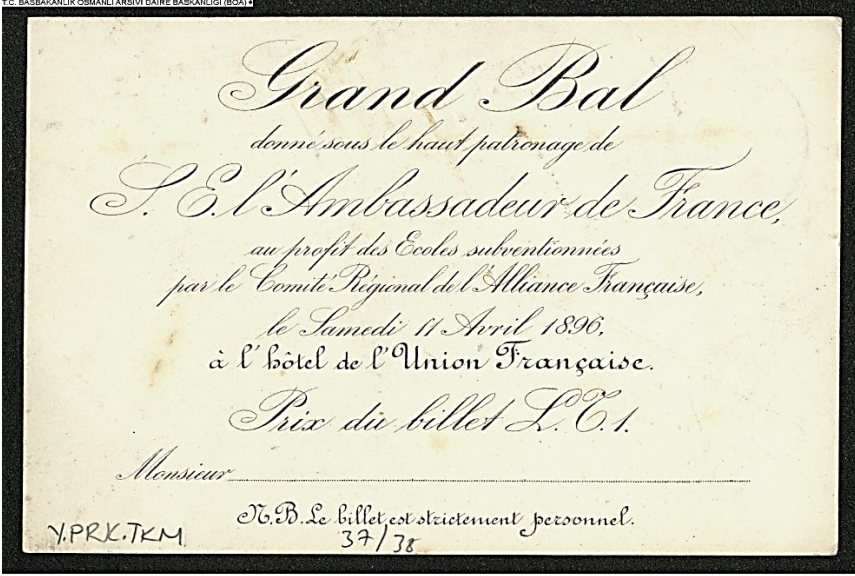 T.C. BAŞBAKANLIK OSMANLI ARŞİVİ DAİRE BAŞKANLIĞI (BOA)
Grand Bal
donné sous le haut patronage de
S. E. l'Ambassadeur de France,
au profit des Ecoles subventionnées
par le Comité Régional de l'Alliance Française,
le Samedi 11 Avril 1896,
à l'hôtel de l'Union Française.
Prix du billet L.T.1.
Monsieur
N.B. Le billet est strictement personnel.
Y.PRK.TKM 37/38